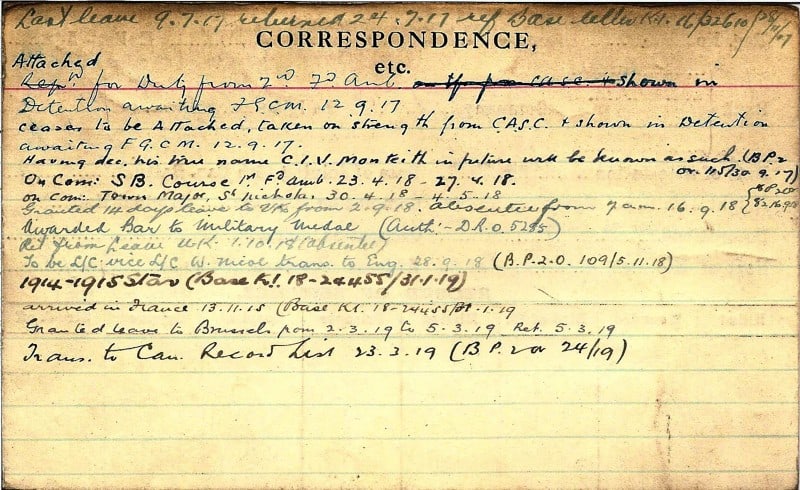 Last leave 9.7.17 returned 24.7.17 ref Base letter K1. 16/32610/
CORRESPONDENCE,
etc.
Attached
for Duty from 2nd Fd Amb. C.A.S.C. & shown in
Detention awaiting F.G.C.M. 12.9.17
ceases to be Attached, taken on strength from C.A.S.C. & shown in Detention
awaiting F.G.C.M. 12.9.17.
Having dec. his true name C.I.V. Monteith in future will be known as such. (B.P.2
or. 115/30.9.17)
On Com: S.B. Course 1st Fd Amb. 23.4.18 - 27.4.18.
on com: Town Major, St Nicholas, 30.4.18 - 4.5.18
Granted 14 days leave to UK from 2.9.18. absentee from 7 am. 16.9.18
Awarded Bar to Military Medal (Auth:- D.R.O. 5285)
Ret from Leave U.K. 1.10.18 (absentee)
To be L/C vice L/C W. Nicol trans. to Eng. 28.9.18 (B.P.2.O. 109/5.11.18)
1914-1915 Star (Base K1. 18-24455/31.1.19)
arrived in France 13.11.15 (Base K1. 18-24455/31.1.19
Granted leave to Brussels from 2.3.19 to 5.3.19 Ret. 5.3.19
Trans. to Can. Record List 23.3.19 (B.P.2 or 24/19)